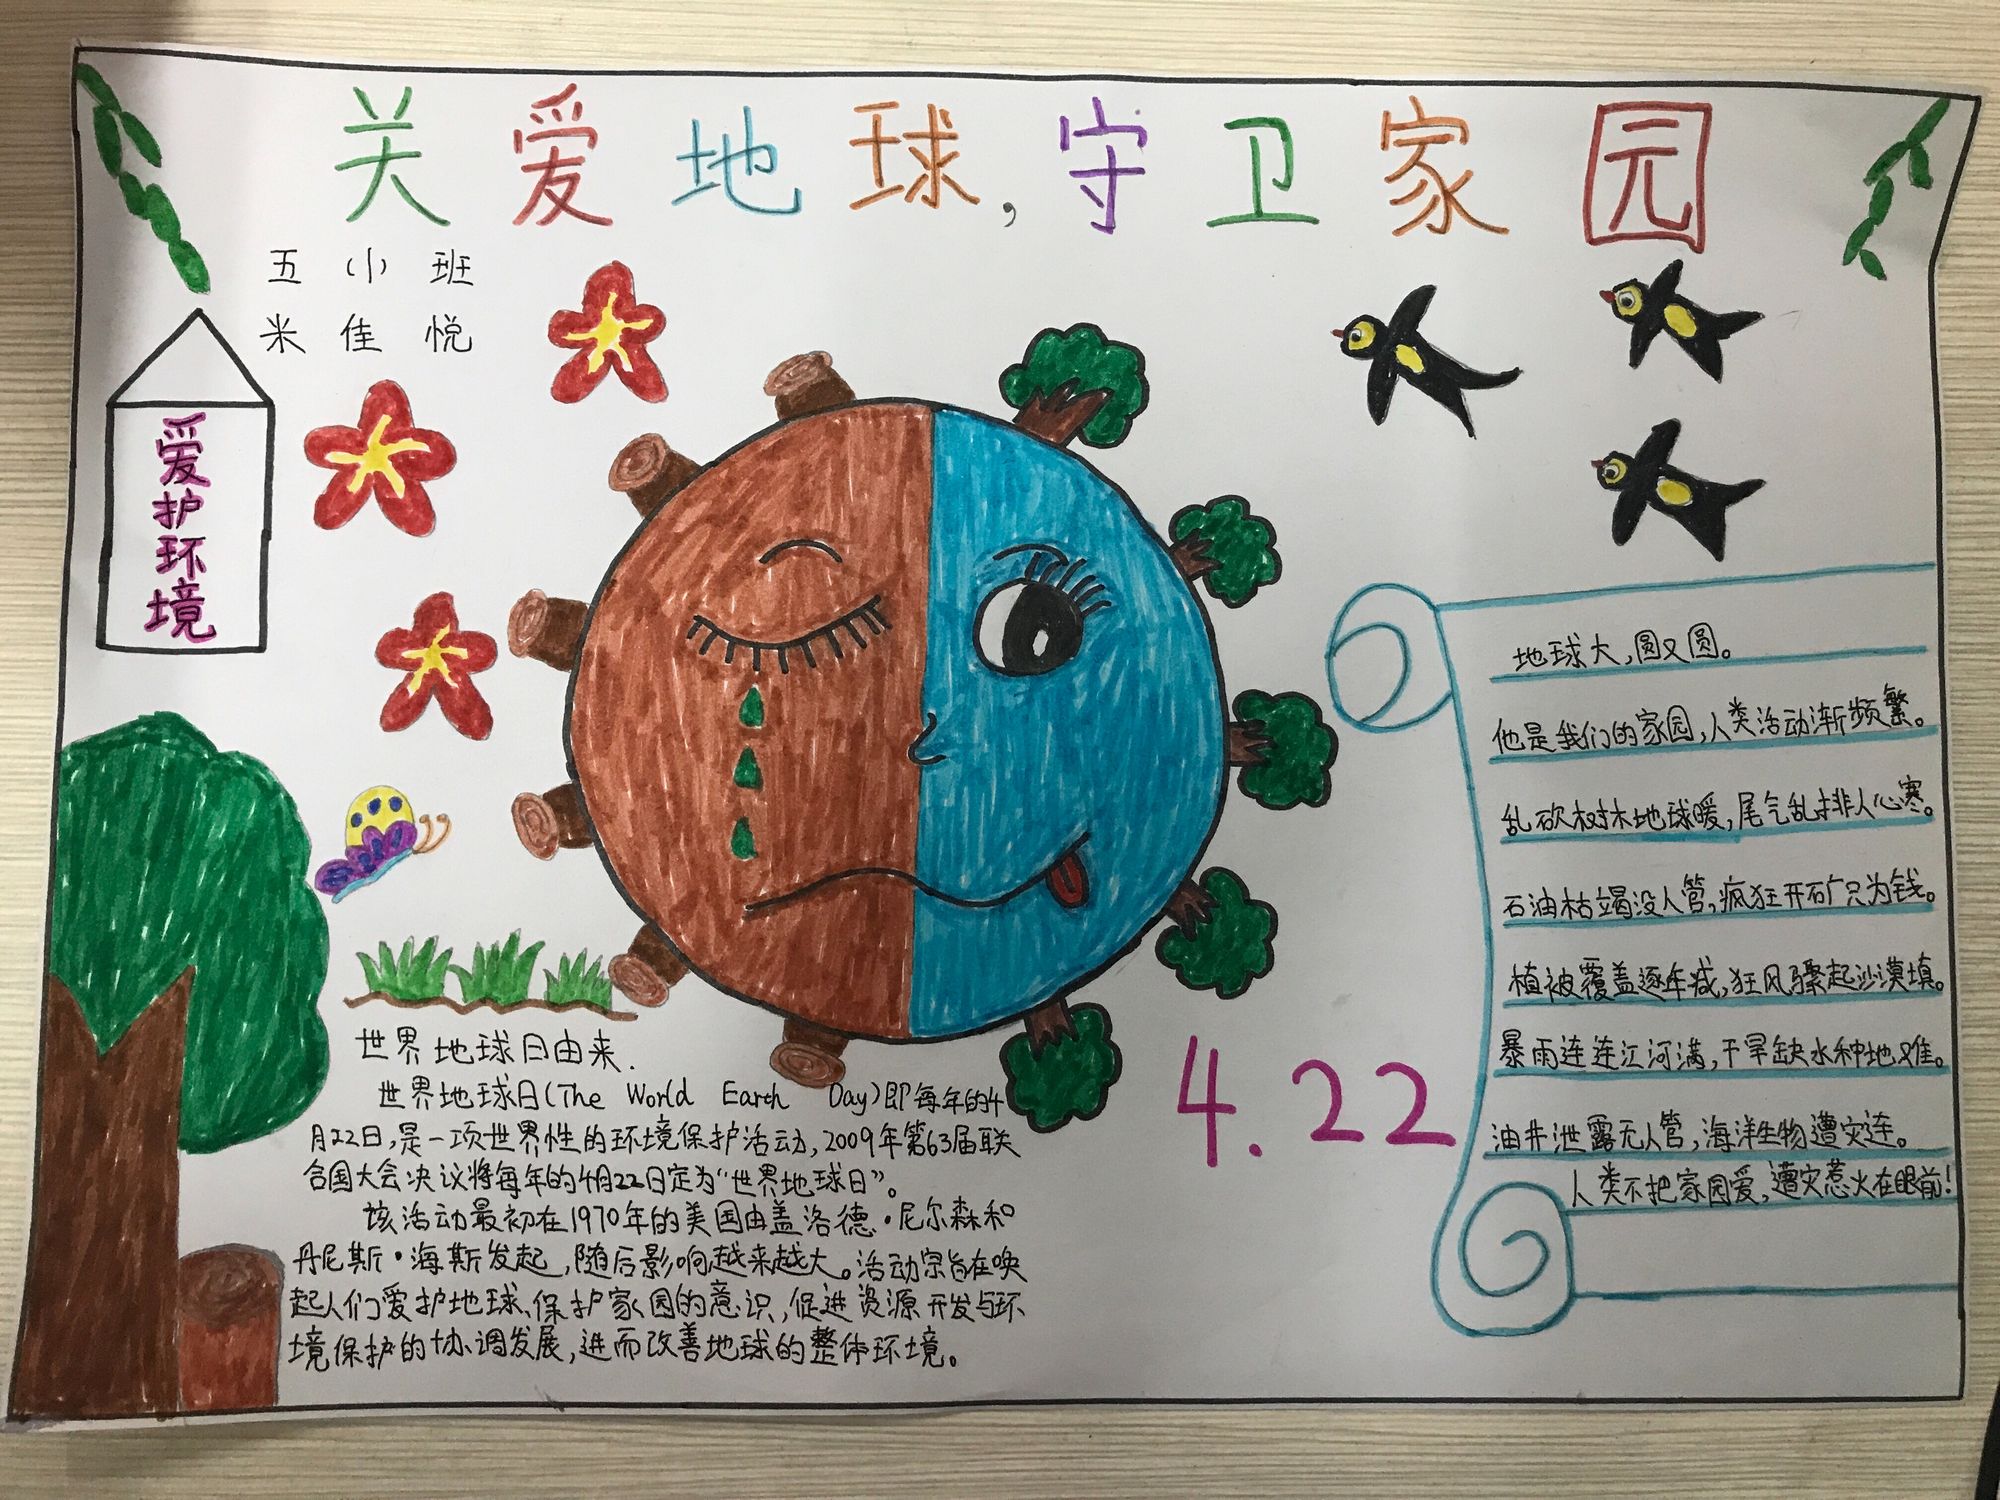 关爱地球,守卫家园
五小班
米佳悦
爱护环境
世界地球日由来.
世界地球日(The World Earth Day)即每年的4
月22日,是一项世界性的环境保护活动,2009年第63届联
合国大会决议将每年的4月22日定为“世界地球日”。
该活动最初在1970年的美国由盖洛德·尼尔森和
丹尼斯·海斯发起,随后影响越来越大。活动宗旨在唤
起人们爱护地球、保护家园的意识,促进资源开发与环
境保护的协调发展,进而改善地球的整体环境。
4.22
地球大,圆又圆。
他是我们的家园,人类活动渐频繁。
乱砍树林地球暖,尾气乱排人心寒。
石油枯竭没人管,疯狂开矿只为钱。
植被覆盖逐年减,狂风骤起沙漠填。
暴雨连连江河满,干旱缺水种地难。
油井泄露无人管,海洋生物遭灾连。
人类不把家园爱,遭灾惹火在眼前!